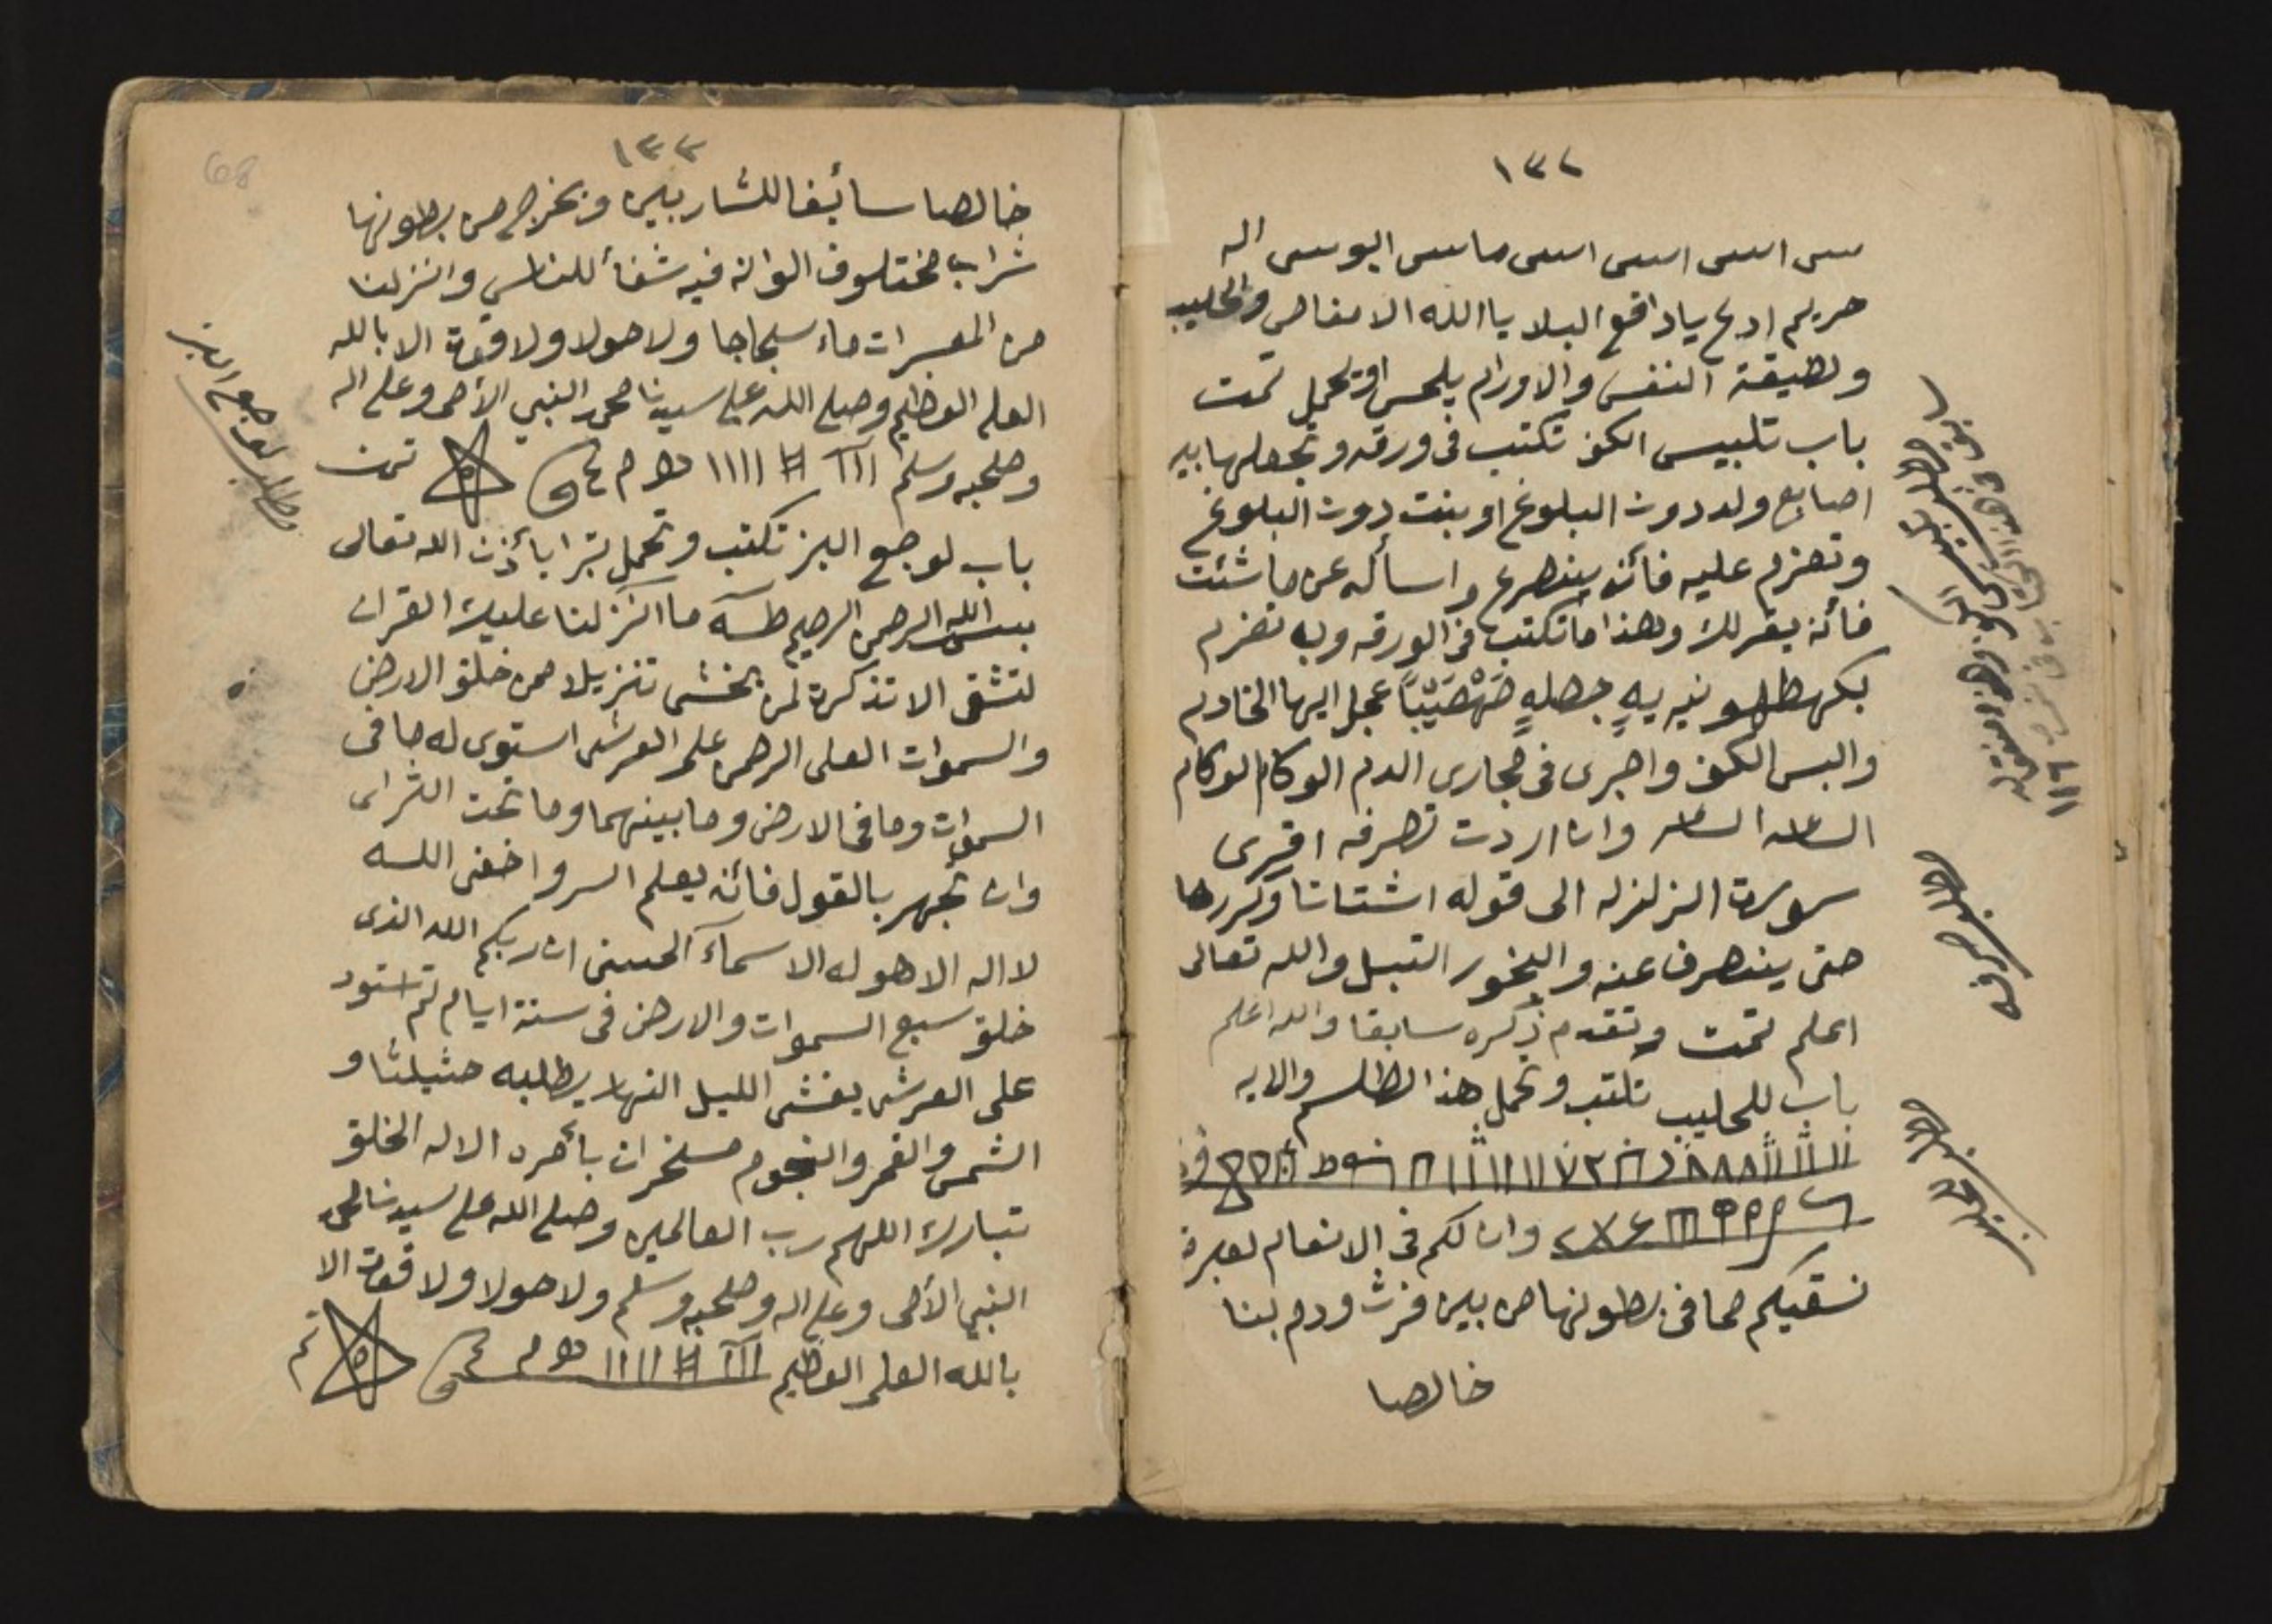 ١٣٢
سس اسس اسس اسس ماسس اليوسس اله
حريم ادع يا دافع البلا يا الله الامغاص والحليب
ولضيقة النفس والاورام يلحس او يحمل تمت
باب تلبيس الكف تكتب فى ورقه وتجعلها بيد
اصابع ولد دون البلوغ او بنت دون البلوغ
وتعزم عليه فأنه ينصرع واسأله عن ما شئت
فأنه يقر لك وهذا ما تكتب فى الورقه وبه تعزم
عجل ايها الخادم
والبس الكف واجرى فى مجارى الدم الوكام الوكام
وان اردت تصرفه اقرى
سورت الزلزله الى قوله اشتاتا وكررها
حتى ينصرف عنه والبخور التبل والله تعالى
اعلم تمت وتقدم ذكره سابقا والله اعلم
باب للحليب تكتب وتحمل هذا الطلسم والايه
وان لكم فى الانعام لعبرة
نسقيكم مما فى بطونها من بين فرث ودم لبنا
خالصا
مطلب صرفه
مطلب للحليب
١١٦
١٣٣
68
خالصا سائغا للشاربين ونخرج من بطونها
شراب مختلوف الوانه فيه شفأ للناس وانزلنا
من المعسرات ماء سجاجا ولا حولا ولا قوة الا بالله
العلى العظيم وصلى الله على سيدنا محمد النبي الأمى وعلى اله
وصحبه وسلم تمت
باب لوجع البز تكتب وتحمل تبرا بأذن الله تعالى
بسم الله الرحمن الرحيم طسه ما انزلنا عليك القران
لتشقى الا تذكرة لمن يخشى تنزيلا ممن خلق الارض
والسموات العلى الرحمن على العرش استوى له ما فى
السموات وما فى الارض وما بينهما وما تحت الثراى
وان تجهر بالقول فأنه يعلم السر واخفى الله
لا اله الا هو له الاسمآء الحسنى ان ربكم الله الذى
خلق سبع السموات والارض فى ستة ايام ثم استود
على العرش يغشى الليل النهار يطلبه حثيلثا و
الشمس والقمر والنجوم مسخرات بأمره الا له الخلق
تبارك اللهم رب العالمين وصلى الله على سيدنا محمد
النبي الأمى وعلى اله وصحبه وسلم ولا حولا ولا قوة الا
بالله العلى العظيم تم
مطلب لوجع البز